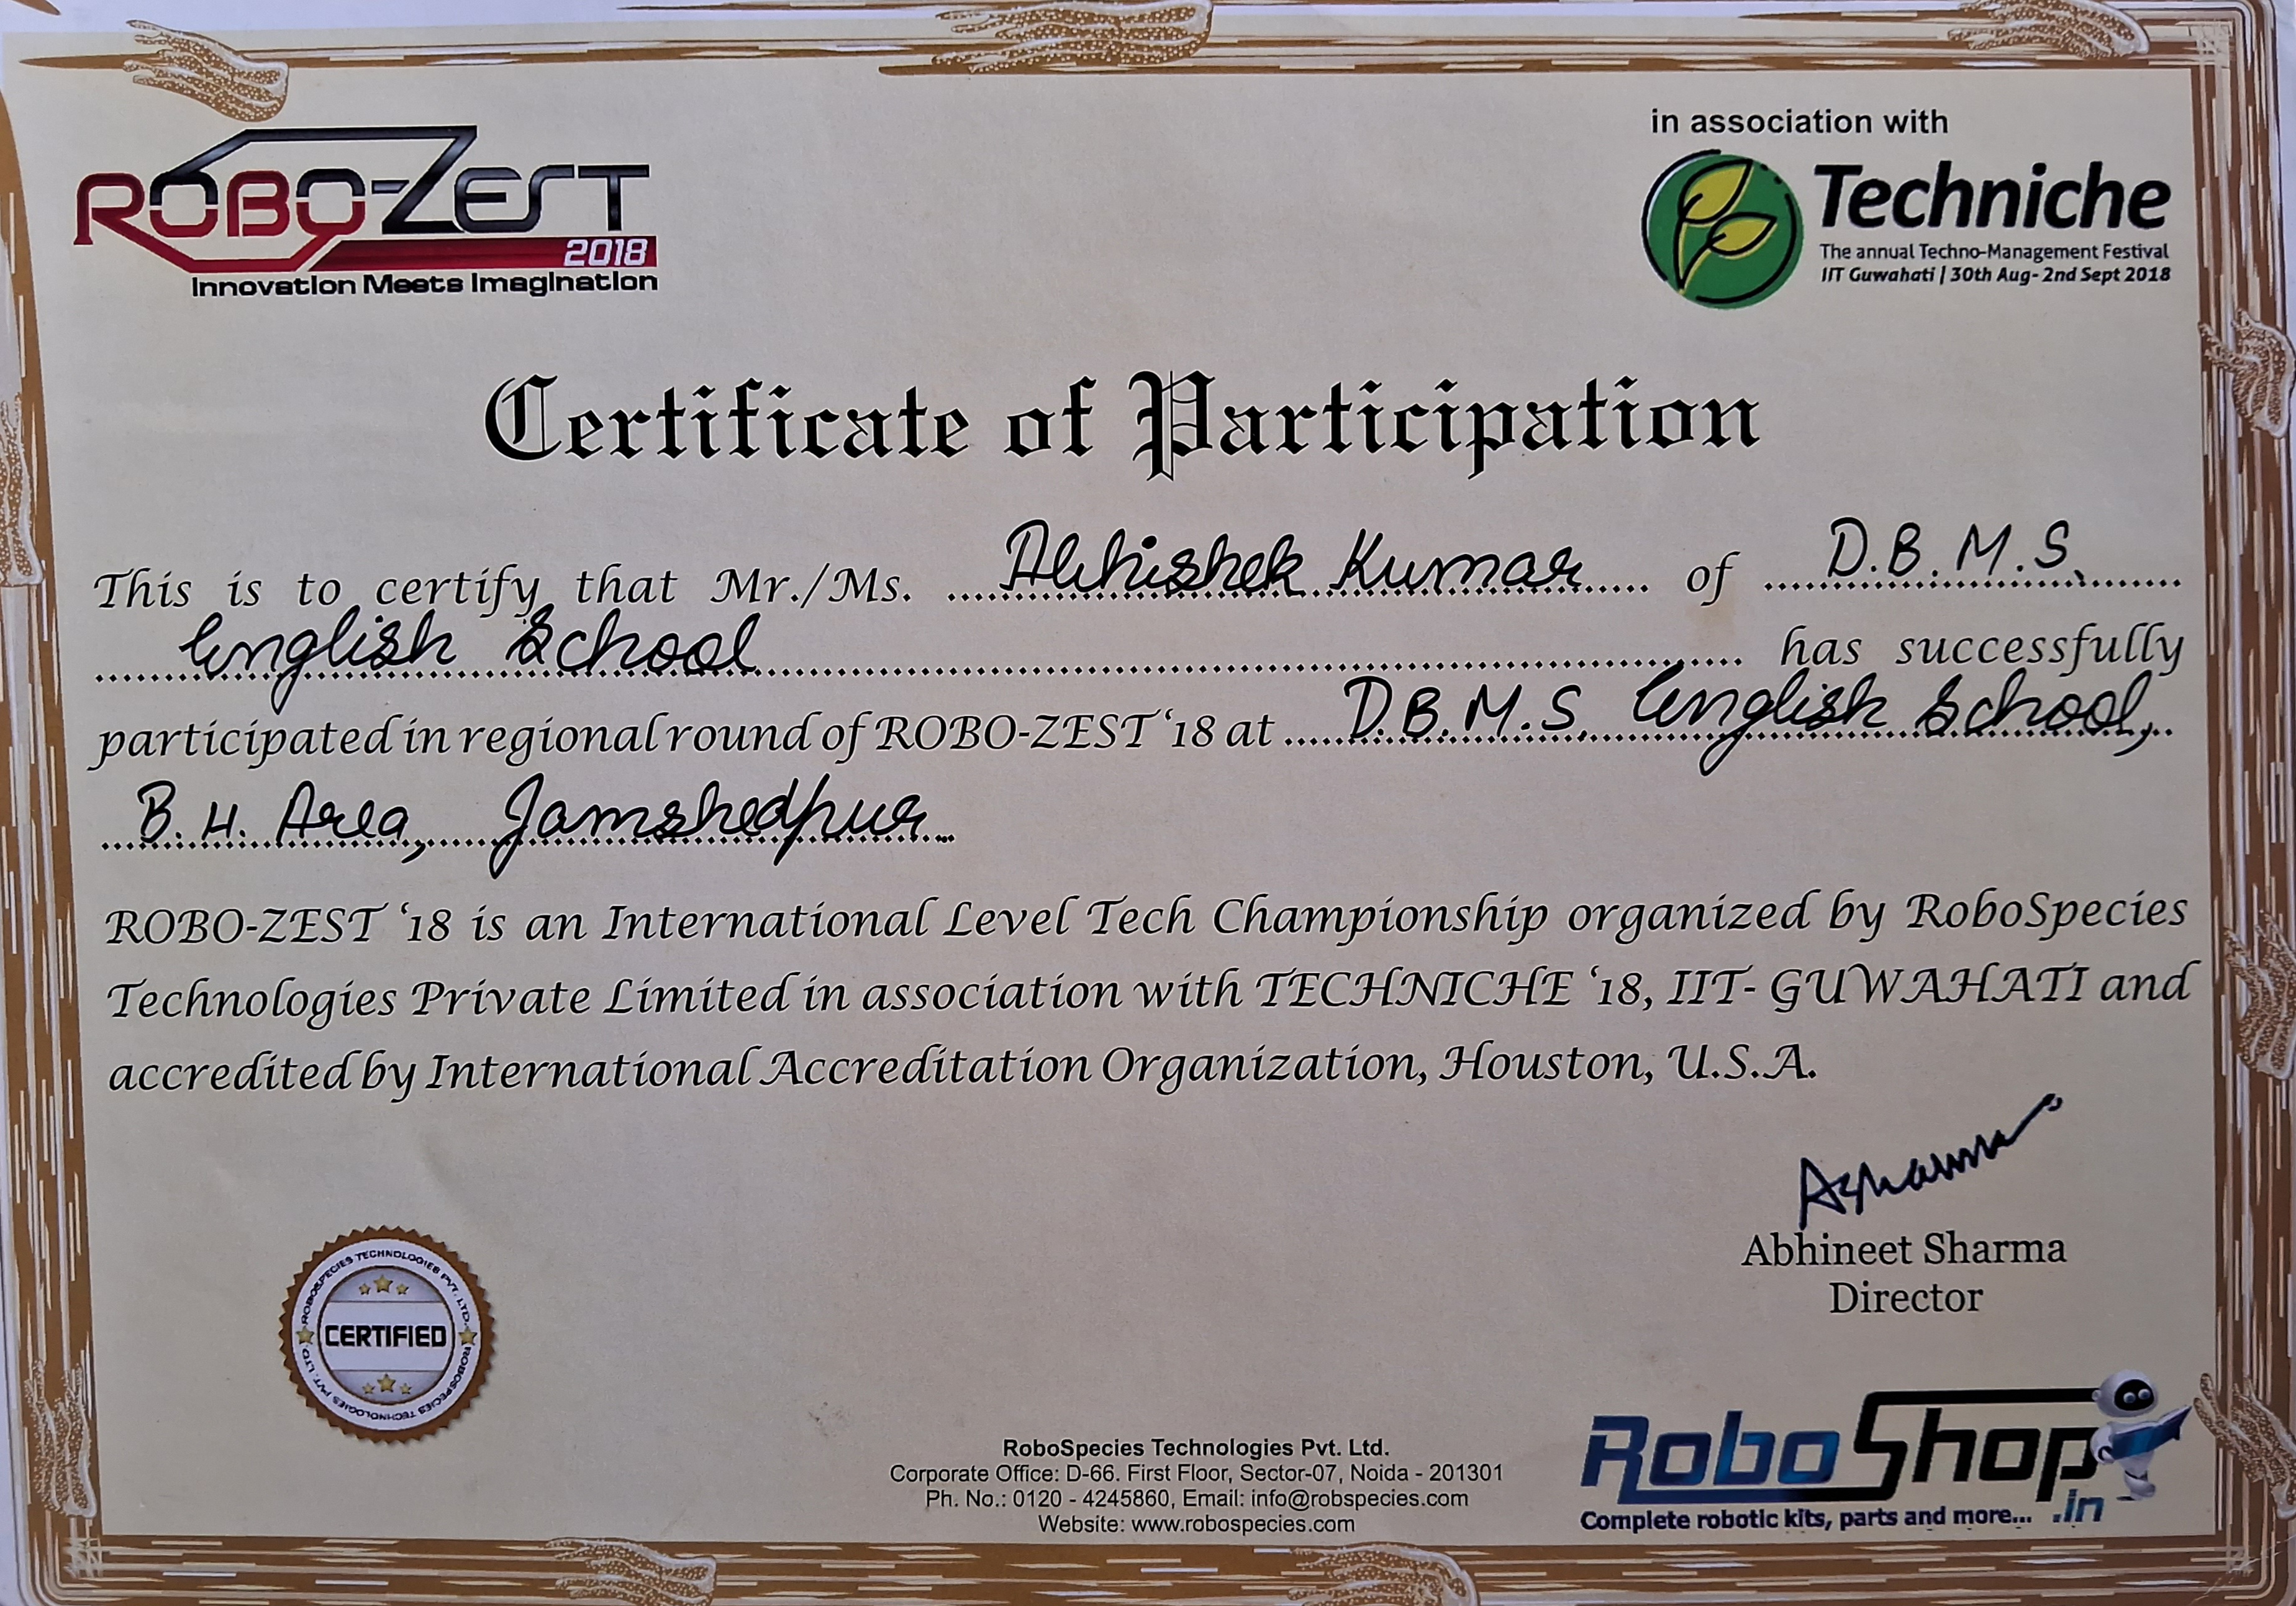 ROBO-ZEST
2018
Innovation Meets Imagination
in association with
Techniche
The annual Techno-Management Festival
IIT Guwahati | 30th Aug- 2nd Sept 2018
Certificate of Participation
This is to certify that Mr./Ms. Abhishek Kumar of D.B.M.S.
English School has successfully
participated in regional round of ROBO-ZEST '18 at D.B.M.S. English School,
B.H. Area, Jamshedpur
ROBO-ZEST '18 is an International Level Tech Championship organized by RoboSpecies
Technologies Private Limited in association with TECHNICHE '18, IIT- GUWAHATI and
accredited by International Accreditation Organization, Houston, U.S.A.
ASharma
Abhineet Sharma
Director
ROBOSPECIES TECHNOLOGIES PVT. LTD.
CERTIFIED
ROBOSPECIES TECHNOLOGIES PVT. LTD.
RoboSpecies Technologies Pvt. Ltd.
Corporate Office: D-66. First Floor, Sector-07, Noida - 201301
Ph. No.: 0120 - 4245860, Email: info@robspecies.com
Website: www.robospecies.com
RoboShop
.in
Complete robotic kits, parts and more...